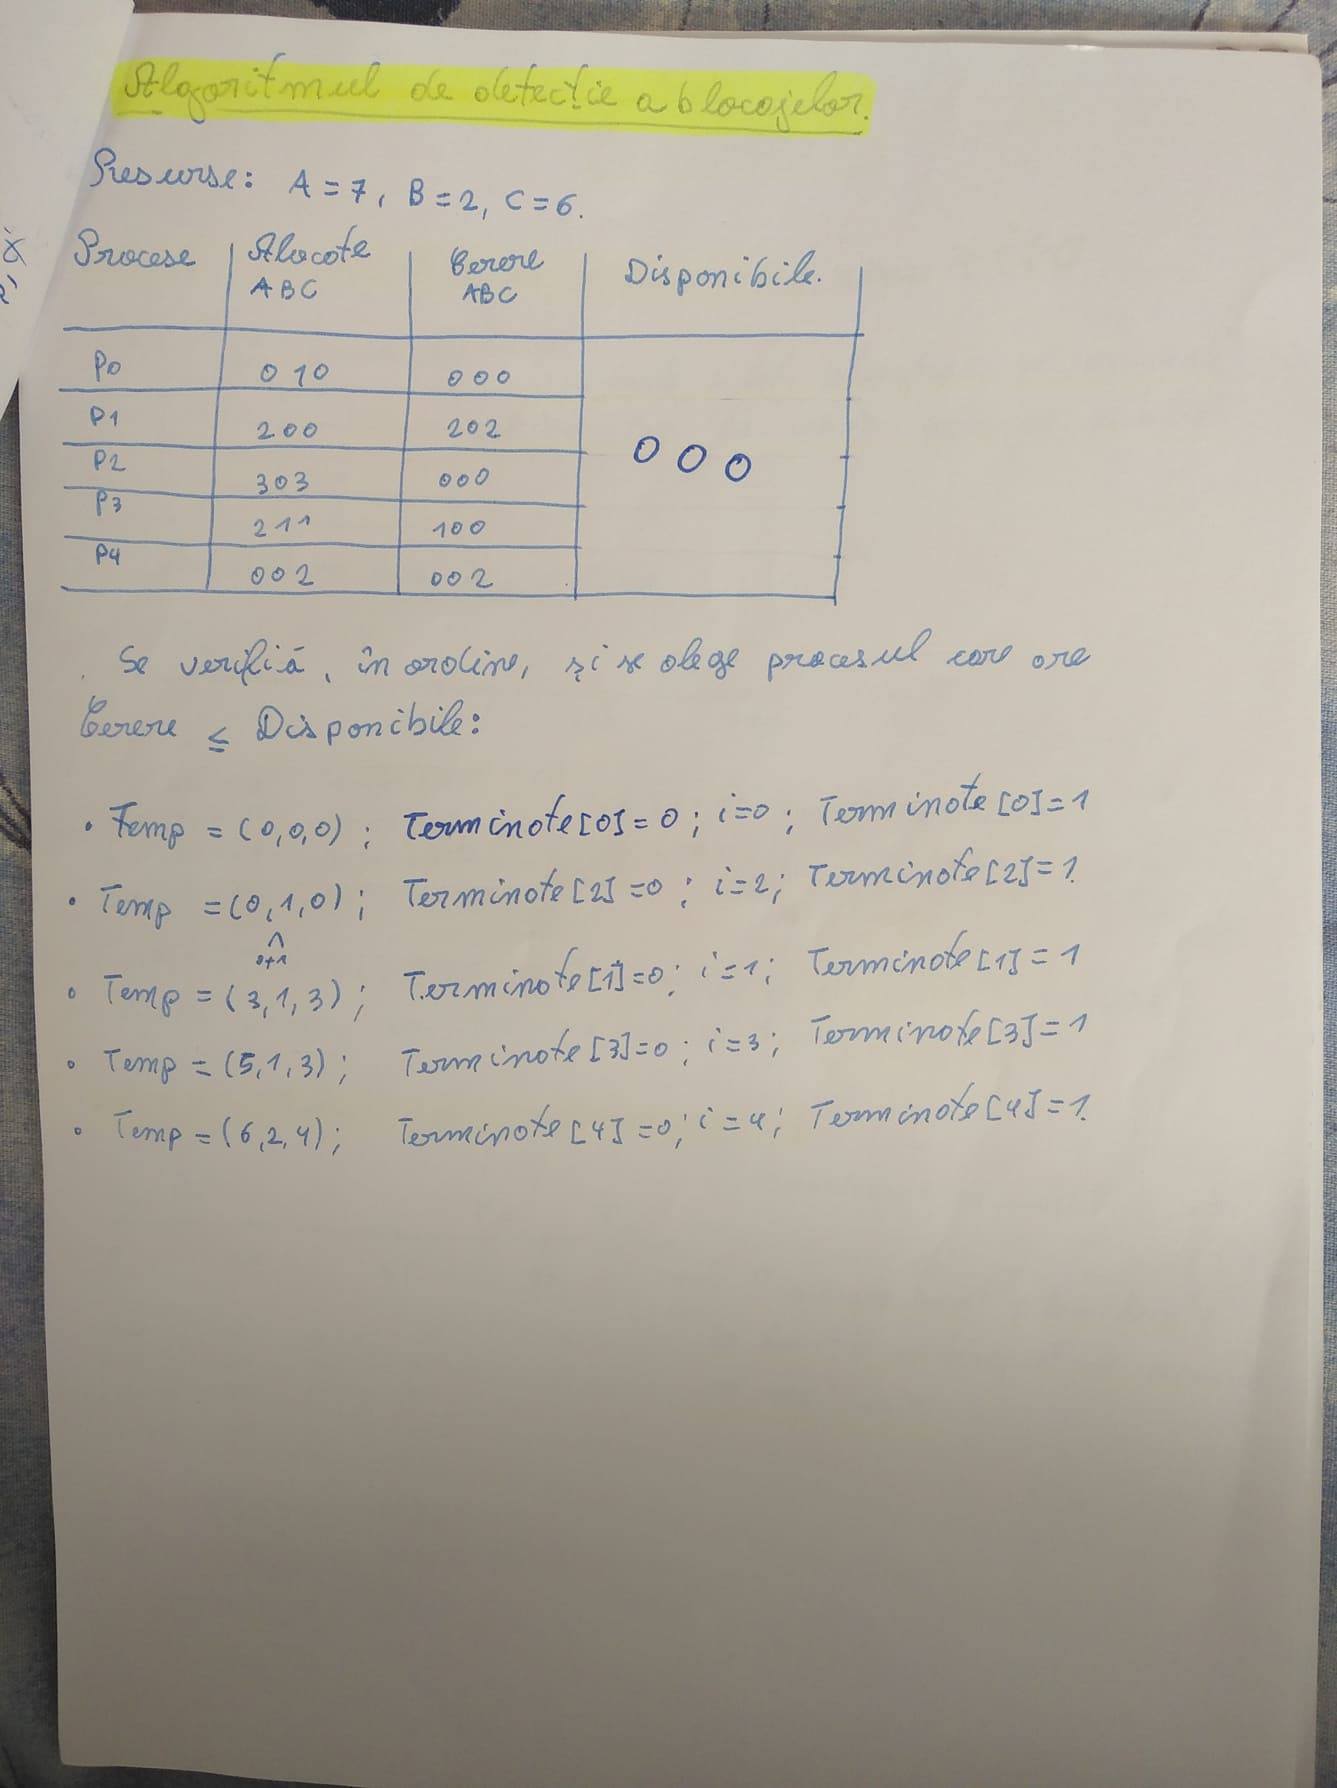 Algoritmul de detecție a blocajelor.
Resurse: A = 7, B = 2, C = 6.
Procese Alocate Cerere Disponibile.
ABC ABC
P0 010 000
P1 200 202
000
P2 303 000
P3 211 100
P4 002 002
Se verifică, în ordine, și se alege procesul care are
Cerere ≤ Disponibile:
• Temp = (0,0,0); Terminate[0]=0; i=0; Terminate[0]=1
• Temp = (0,1,0); Terminate[2]=0; i=2; Terminate[2]=1.
^
0+1
• Temp = (3,1,3); Terminate[1]=0; i=1; Terminate[1]=1
• Temp = (5,1,3); Terminate[3]=0; i=3; Terminate[3]=1
• Temp = (6,2,4); Terminate[4]=0; i=4; Terminate[4]=1.